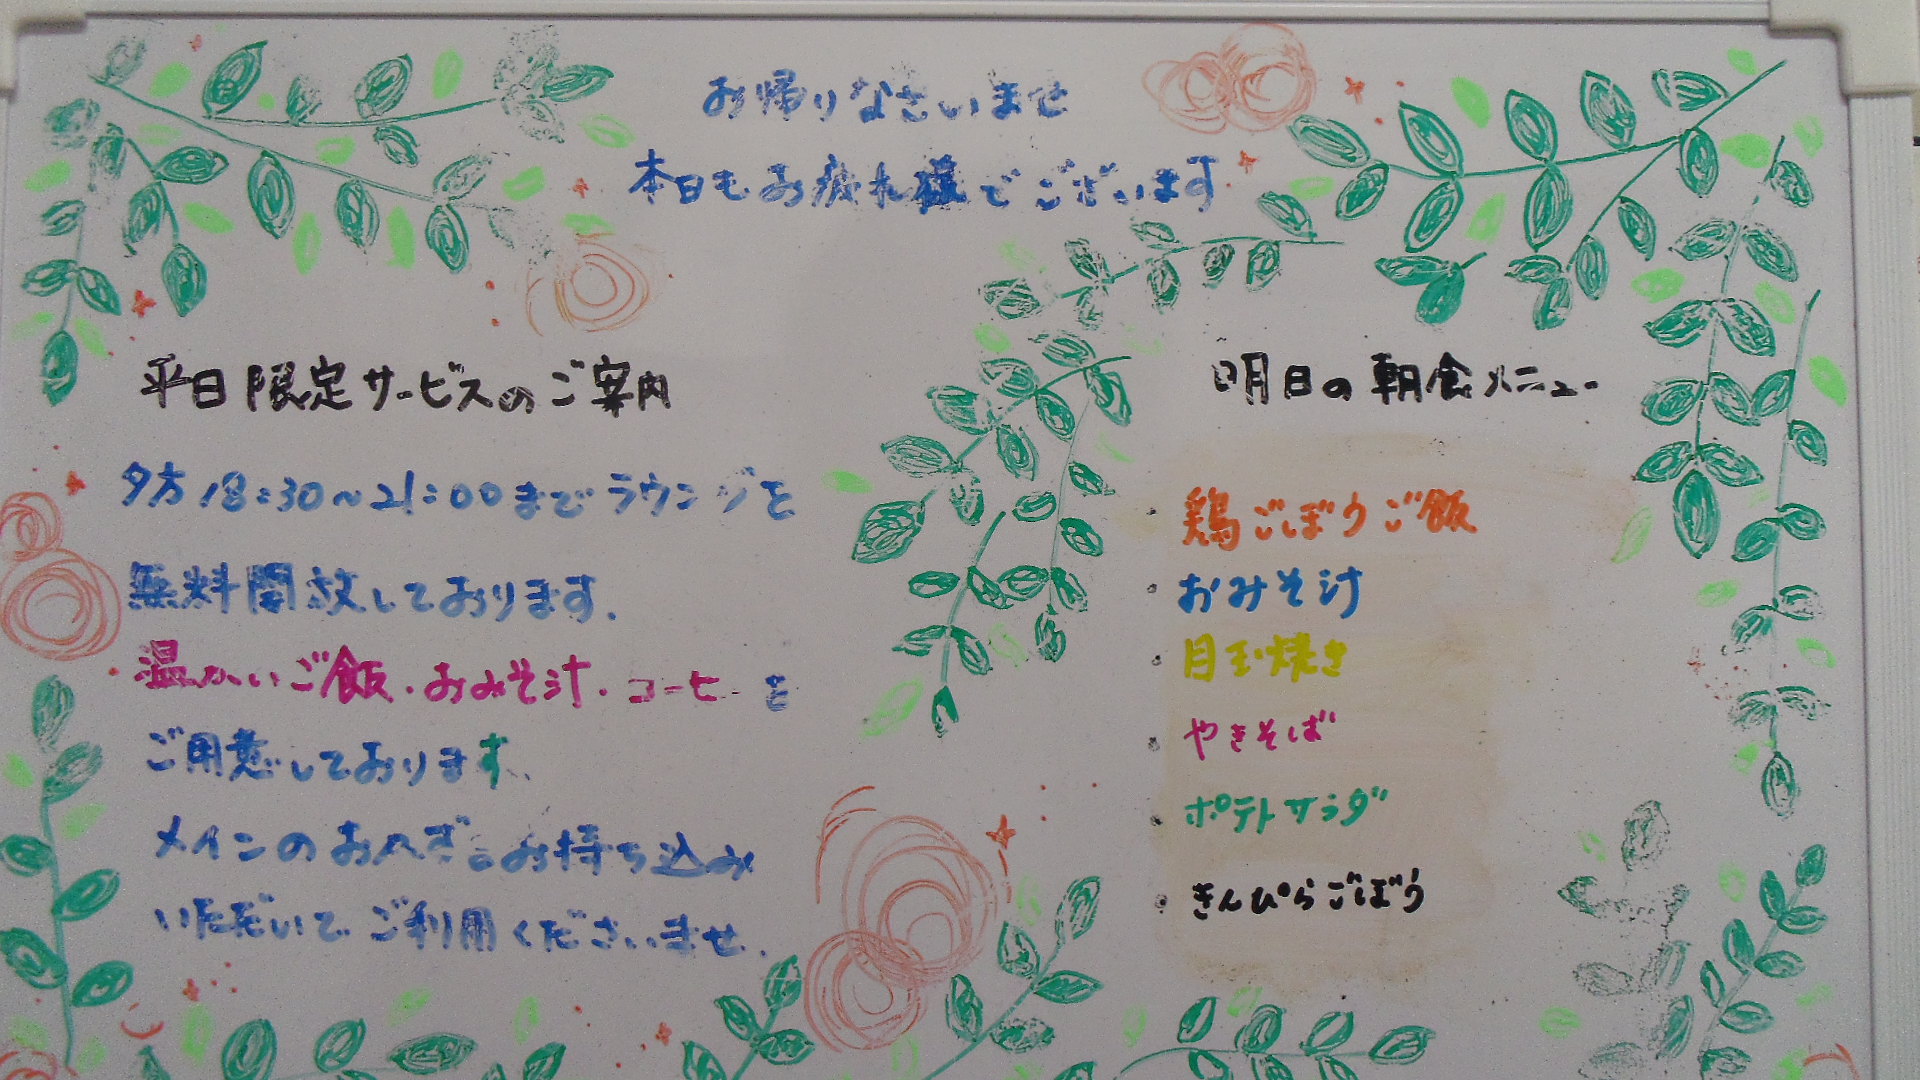 お帰りなさいませ
本日もお疲れ様でございます
平日限定サービスのご案内
夕方18:30～21:00までラウンジを
無料開放しております.
温かいご飯・おみそ汁・コーヒーを
ご用意しております、
メインのおかずをお持ち込み
いただいて ご利用くださいませ.
明日の朝食メニュー
・鶏ごぼうご飯
・おみそ汁
・目玉焼き
・やきそば
・ポテトサラダ
・きんぴらごぼう